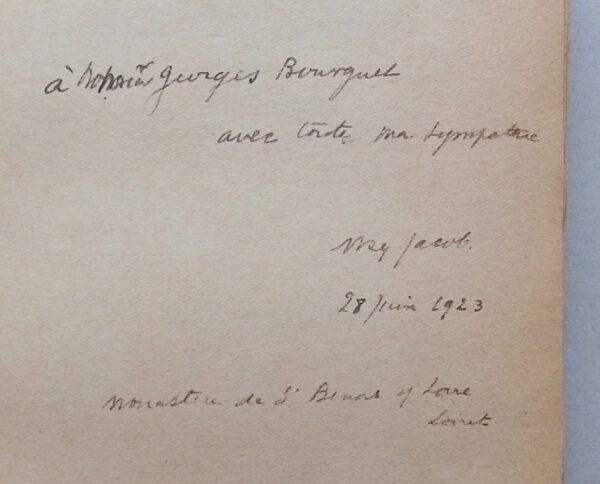 à Monsieur Georges Bourguet
avec toute ma sympathie
Max Jacob.
28 juin 1923
Monastère de St Benoit s/ Loire
Loiret